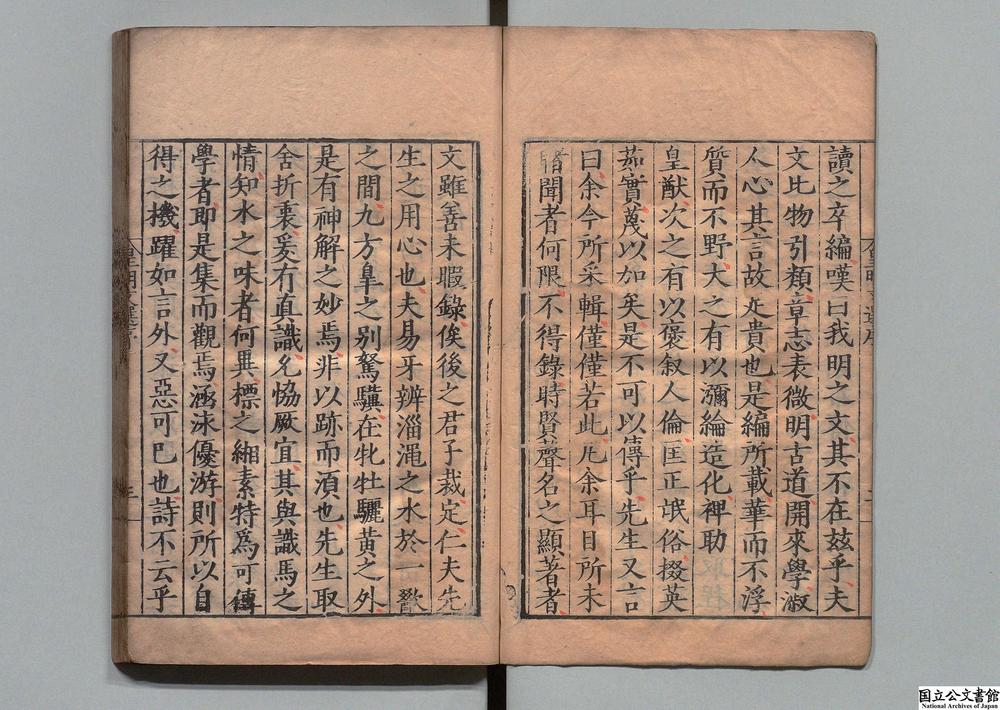 讀之卒編嘆曰我明之文其不在玆乎夫
文比物引類章志表微明古道開來學淑
人心其言故足貴也是編所載華而不浮
質而不野大之有以瀰綸造化裨助
皇猷次之有以褒叙人倫匡正氓俗掇英
茹實蔑以加矣是不可以傳乎先生又言
曰余今所采輯僅僅若此凡余耳目所未
睹聞者何限不得錄時賢聲名之顯著者
文雖善未暇錄俟後之君子裁定仁夫先
生之用心也夫易牙辨淄澠之水於一歠
之間九方臯之别駑驥在牝牡驪黃之外
是有神解之妙焉非以跡而湏也先生取
舍折衷爰有真識允恊厥宜其與識馬之
情知水之味者何異標之緗素特爲可傳
學者即是集而觀焉涵泳優游則所以自
得之機躍如言外又惡可巳也詩不云乎
皇明文選序
三
国立公文書館
National Archives of Japan